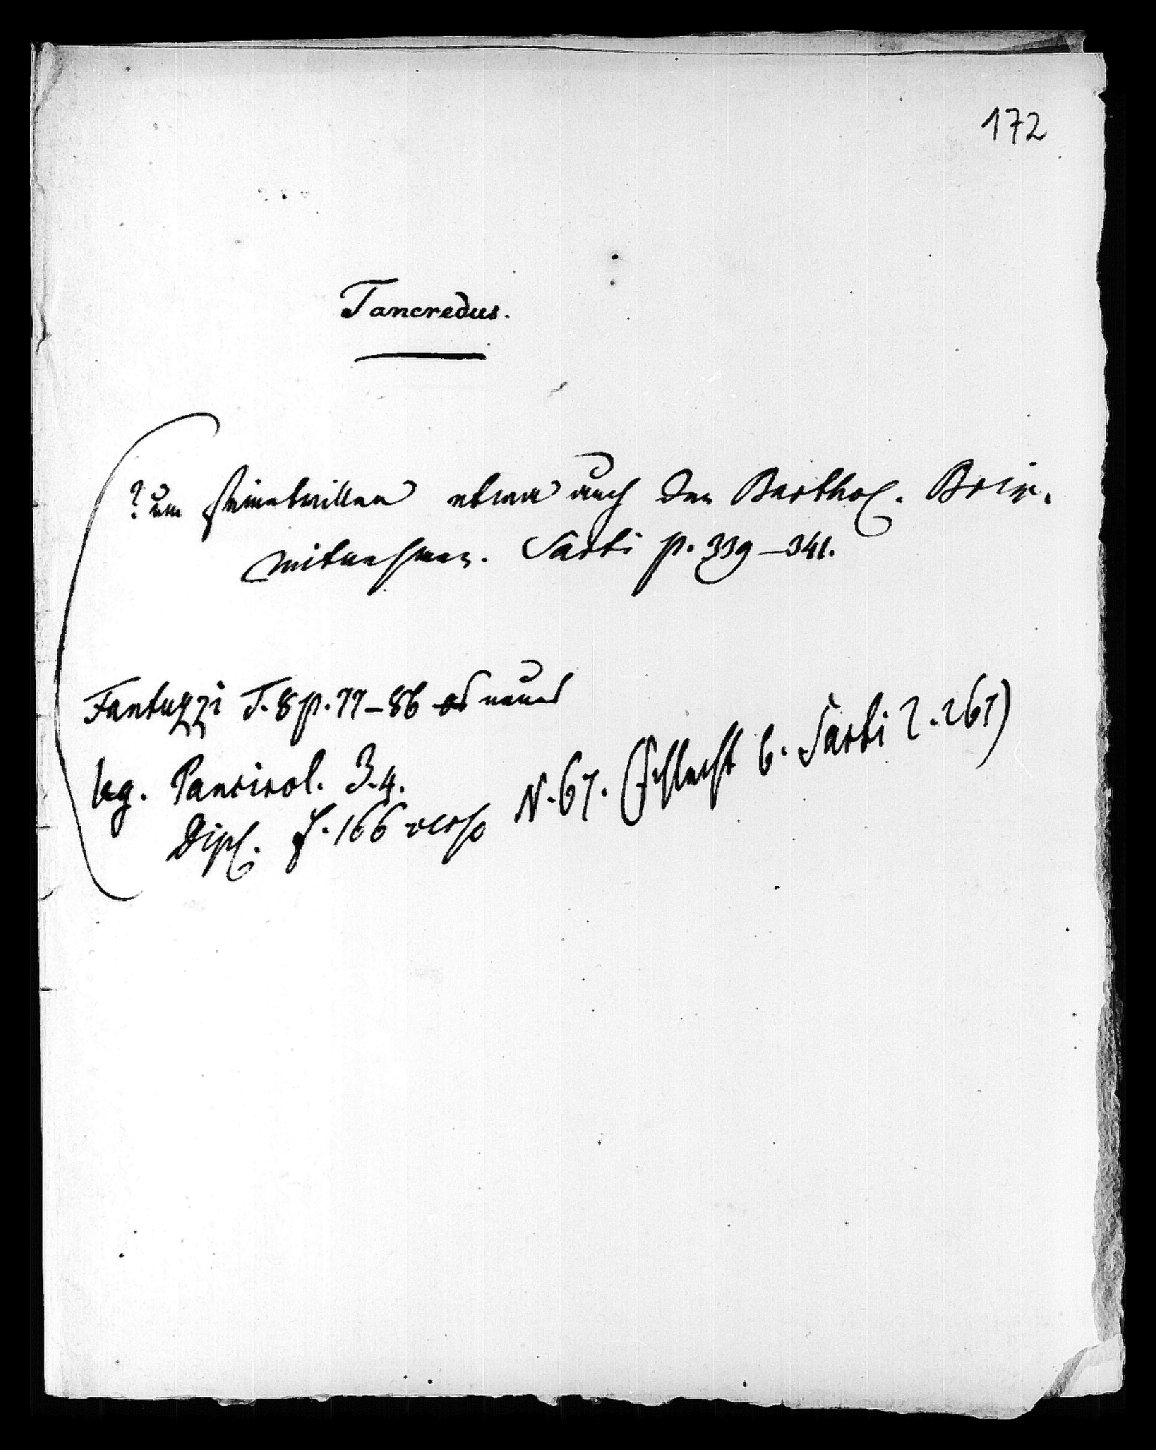 172
Tancredus.
? um seinetwillen etwa auch den Barthol. Brix.
mitnehmen. Sarti p. 339–341.
Fantuzzi T. 8 p. 77–86 neues
Pancirol. 3.4.
Dipl. f. 166 verso N. 67. (schlecht b. Sarti 2. 267)